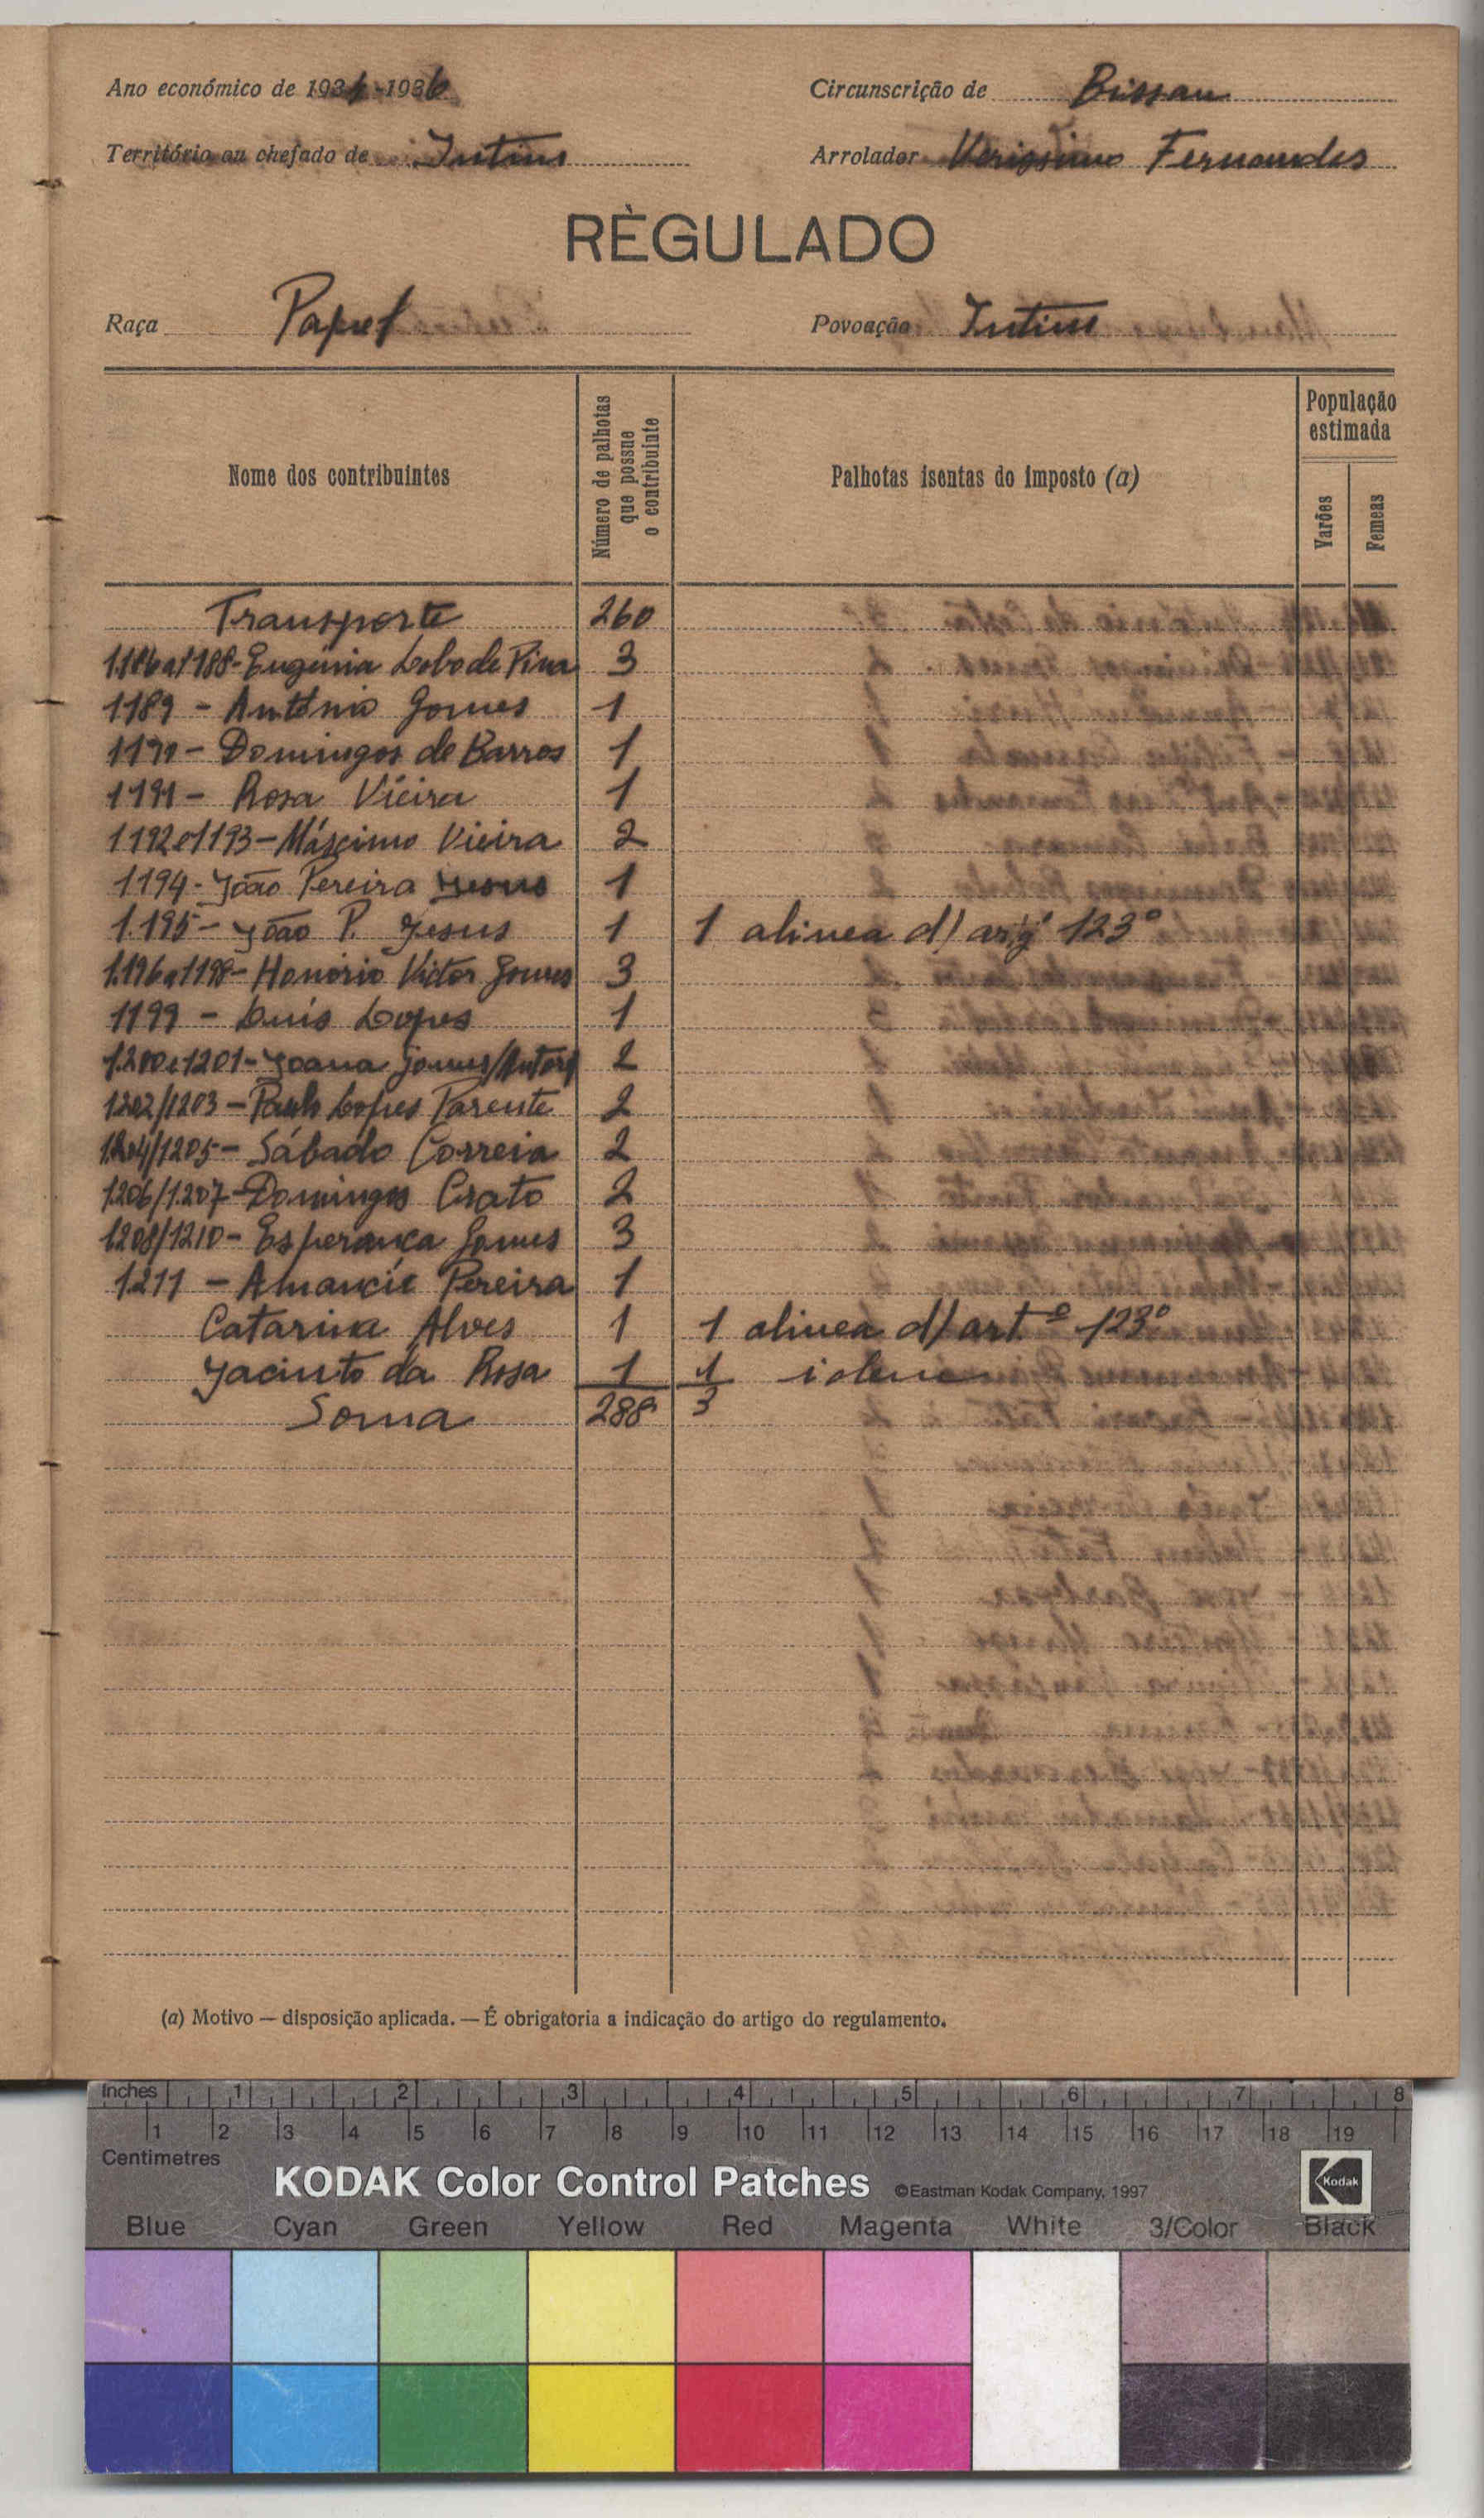 Ano económico de 1934-1936 Circunscrição de Bissau
Território ou chefado de Intim Arrolador Verissimo Fernandes
RÈGULADO
Raça Papel Povoação Intim
Nome dos contribuintes
Número de palhotas que possue o contribuinte
Palhotas isentas do imposto (a)
População estimada
Varões
Femeas
Transporte 260
1186a1188-Eugénia Lobo de Pina 3
1189 - António Gomes 1
1190 - Domingos de Barros 1
1191 - Rosa Vieira 1
1192e1193-Máscimo Vieira 2
1194-João Pereira Jesus 1
1.195 - João P. Jesus 1 1 alinea d) 123º
1.196a1198-Honório Victor Gomes 3
1199 - Luis Lopes 1
1.200e1201-Joana Gomes 2
1202/1203-Paulo Lopes Parente 2
1204/1205-Sábado Correia 2
1206/1.207-Domingos Crato 2
1208/1210-Esperança Gomes 3
1.211 - Amancio Pereira 1
Catarina Alves 1 1 alinea d) artº 123º
Jacinto da Rosa 1 1 idem
Soma 288 3
(a) Motivo — disposição aplicada. — É obrigatoria a indicação do artigo do regulamento.
Inches 1 2 3 4 5 6 7 8
1 2 3 4 5 6 7 8 9 10 11 12 13 14 15 16 17 18 19
Centimetres
KODAK Color Control Patches ©Eastman Kodak Company, 1997
Kodak
Blue Cyan Green Yellow Red Magenta White 3/Color Black